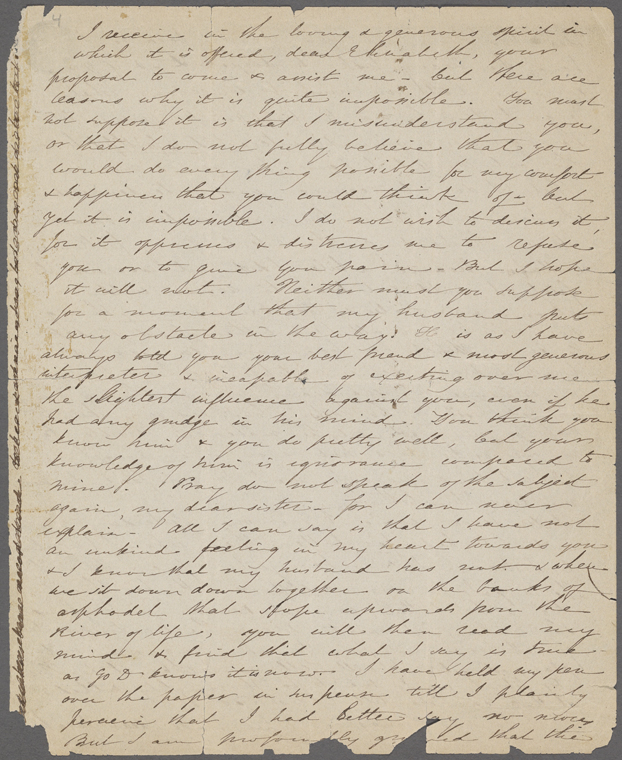 4
I receive in the loving & generous spirit in
which it is offered, dear Elizabeth, your
proposal to come & assist me - but there are
reasons why it is quite impossible. You must
not suppose it is that I misunderstand you,
or that I do not fully believe that you
would do every thing possible for my comfort
& happiness that you could think of - but
yet it is impossible. I do not wish to discuss it,
for it oppresses & distresses me to refuse
you or to give you pain - But I hope
it will not. Neither must you suppose
for a moment that my husband puts
any obstacle in the way! He is as I have
always told you your best friend & most generous
interpreter & incapable of exerting over me
the slightest influence against you, even if he
had any grudge in his mind. You think you
know him & you do pretty well, but your
knowledge of him is ignorance compared to
mine. Pray do not speak of the subject
again, my dear sister - for I can never
explain - All I can say is that I have not
an unkind feeling in my heart towards you
& I know that my husband has not. & when
we sit down down together on the banks of
asphodel that slope upwards from the
River of life, you will then read my
mind & find that what I say is true -
as God knows it is now. I have held my pen
over the paper in suspense till I plainly
perceive that I had better say no more
But I am profoundly that the